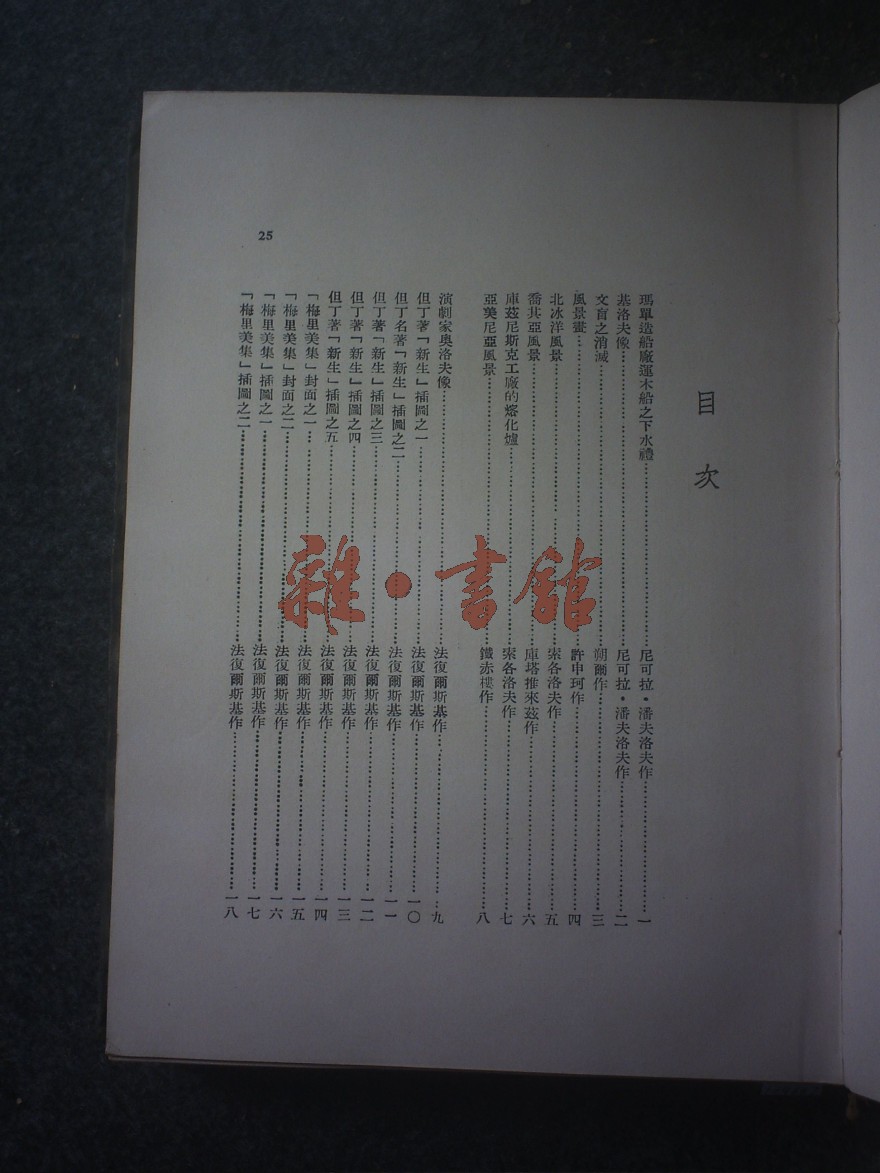 目次
瑪單造船廠運木船之下水禮……尼可拉·潘夫洛夫作……一
基洛夫像……尼可拉·潘夫洛夫作……二
文盲之消滅……朔爾作……三
風景畫……許申珂作……四
北冰洋風景……索各洛夫作……五
喬其亞風景……庫塔推來茲作……六
庫茲尼斯克工廠的熔化爐……索各洛夫作……七
亞美尼亞風景……鐵赤樓作……八
演劇家奧洛夫像……法復爾斯基作……九
但丁著「新生」插圖之一……法復爾斯基作……一〇
但丁名著「新生」插圖之二……法復爾斯基作……一一
但丁著「新生」插圖之三……法復爾斯基作……一二
但丁著「新生」插圖之四……法復爾斯基作……一三
但丁著「新生」插圖之五……法復爾斯基作……一四
「梅里美集」封面之一……法復爾斯基作……一五
「梅里美集」封面之二……法復爾斯基作……一六
「梅里美集」插圖之一……法復爾斯基作……一七
「梅里美集」插圖之二……法復爾斯基作……一八
25
雜·書館